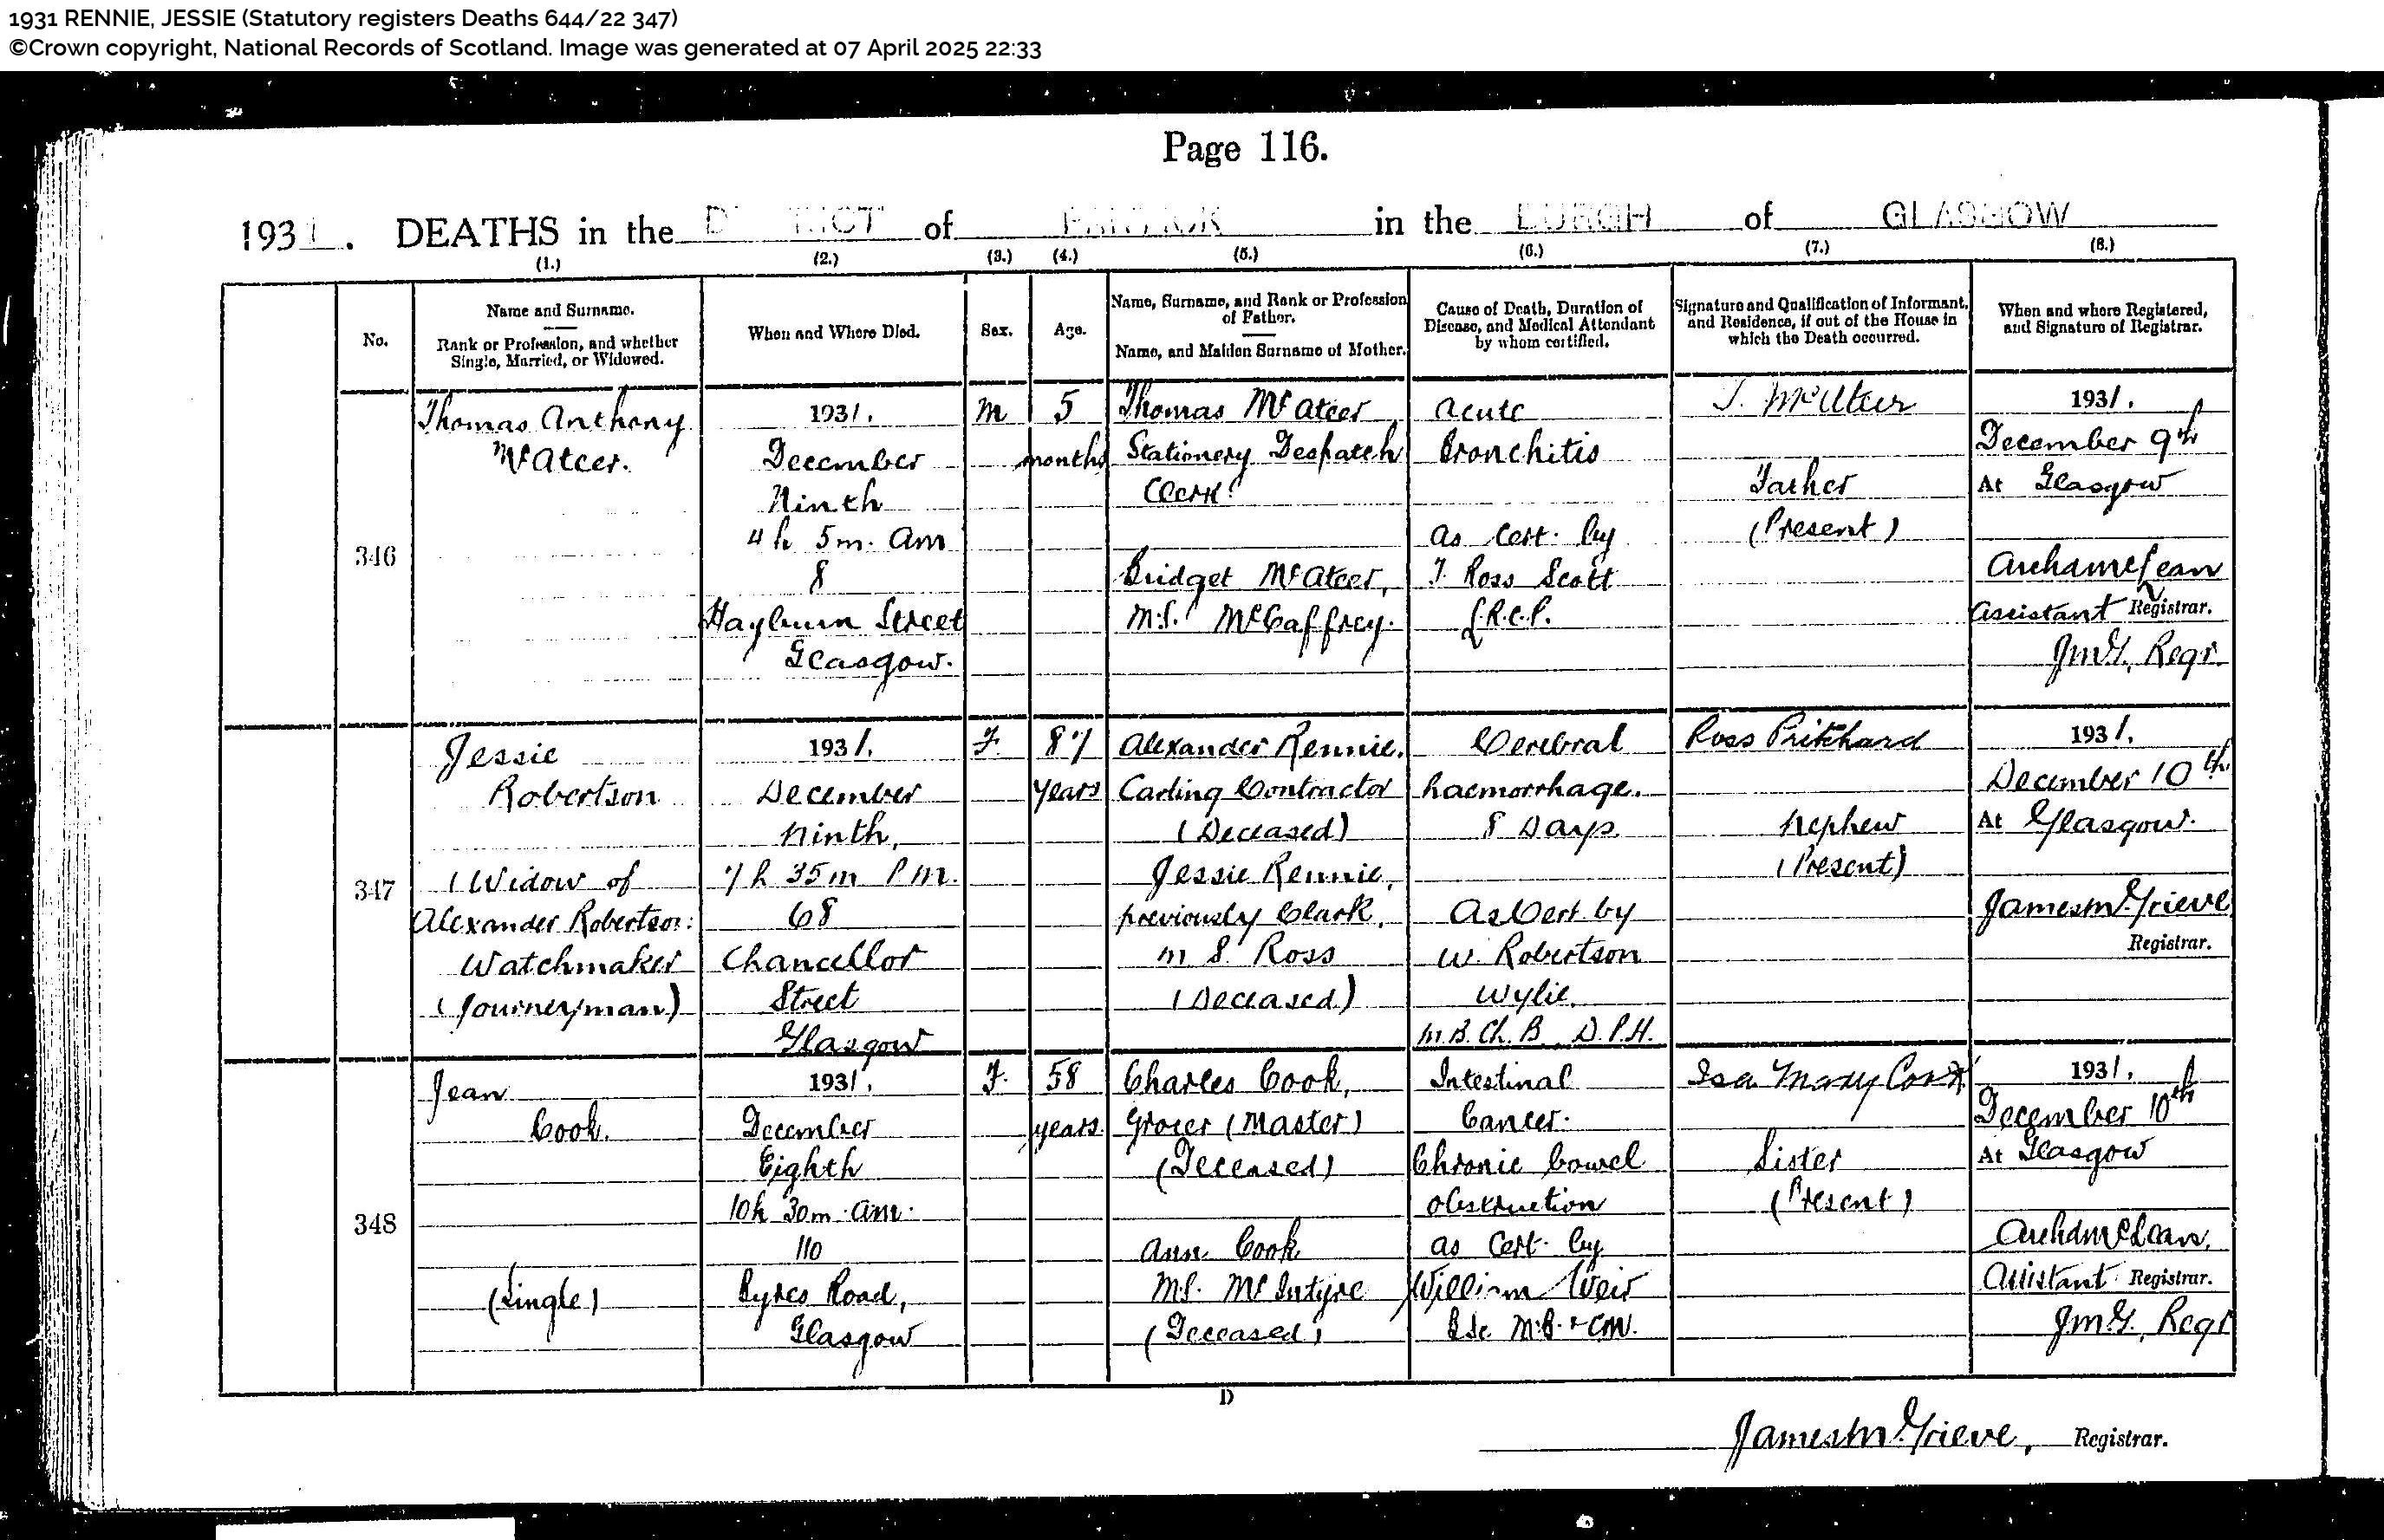 1931 RENNIE, JESSIE (Statutory registers Deaths 644/22 347)
©Crown copyright, National Records of Scotland. Image was generated at 07 April 2025 22:33
Page 116.
1931. DEATHS in the DISTRICT of PARTICK in the BURGH of GLASGOW
(1.) (2.) (3.) (4.) (5.) (6.) (7.) (8.)
No.
Name and Surname.
Rank or Profession, and whether
Single, Married, or Widowed.
When and Where Died.
Sex.
Age.
Name, Surname, and Rank or Profession
of Father.
Name, and Maiden Surname of Mother.
Cause of Death, Duration of
Disease, and Medical Attendant
by whom certified.
Signature and Qualification of Informant,
and Residence, if out of the House in
which the Death occurred.
When and where Registered,
and Signature of Registrar.
346
Thomas Anthony
McAteer.
1931.
December
Ninth
4h 5m. am
8
Hayburn Street
Glasgow.
M
5
months
Thomas McAteer
Stationery Despatch
Clerk
Bridget McAteer,
M.S. McCaffrey.
Acute
Bronchitis
as Cert. by
T. Ross Scott
L.R.C.P.
T. McAteer
Father
(Present)
1931.
December 9th
At Glasgow
Archd McLean
Assistant Registrar.
JMG, Regr.
347
Jessie
Robertson
(Widow of
Alexander Robertson:
Watchmaker
(Journeyman)
1931.
December
Ninth,
7h 35m P.M.
68
Chancellor
Street
Glasgow
F.
87
years
Alexander Rennie.
Carting Contractor
(Deceased)
Jessie Rennie,
previously Clark,
m S. Ross
(Deceased)
Cerebral
haemorrhage.
8 Days
As Cert. by
W. Robertson
Wylie.
M.B. Ch. B. D.P.H.
Ross Pritchard
Nephew
(Present)
1931.
December 10th
At Glasgow.
James M. Grieve
Registrar.
348
Jean
Cook.
(Single)
1931.
December
Eighth
10h 30m. am.
110
Byres Road,
Glasgow
F.
58
years.
Charles Cook,
Grocer (Master)
(Deceased)
Ann Cook
M.S. McIntyre
(Deceased)
Intestinal
Cancer.
Chronic bowel
obstruction
as Cert. by
William Weir
BSc M.B. & CM.
Isa Mary Cook
Sister
(Present)
1931.
December 10th
At Glasgow
Archd McLean,
Assistant Registrar.
JMG., Regr
D
James M. Grieve, Registrar.